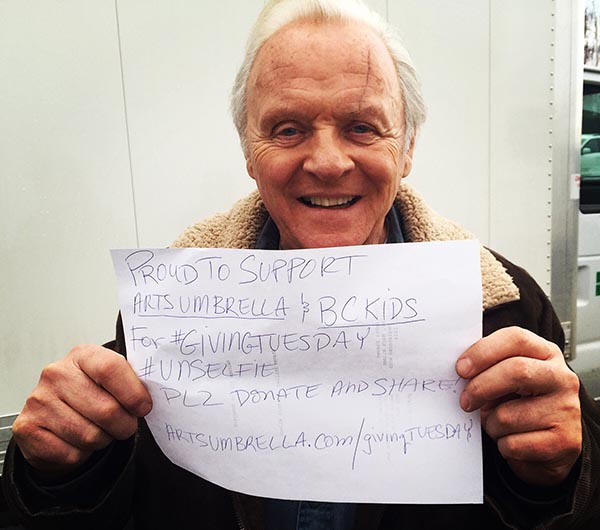 PROUD TO SUPPORT
ARTS UMBRELLA & BC KIDS
FOR #GIVINGTUESDAY
#UNSELFIE
PLZ DONATE AND SHARE!
ARTSUMBRELLA.COM/givingTUESDAY